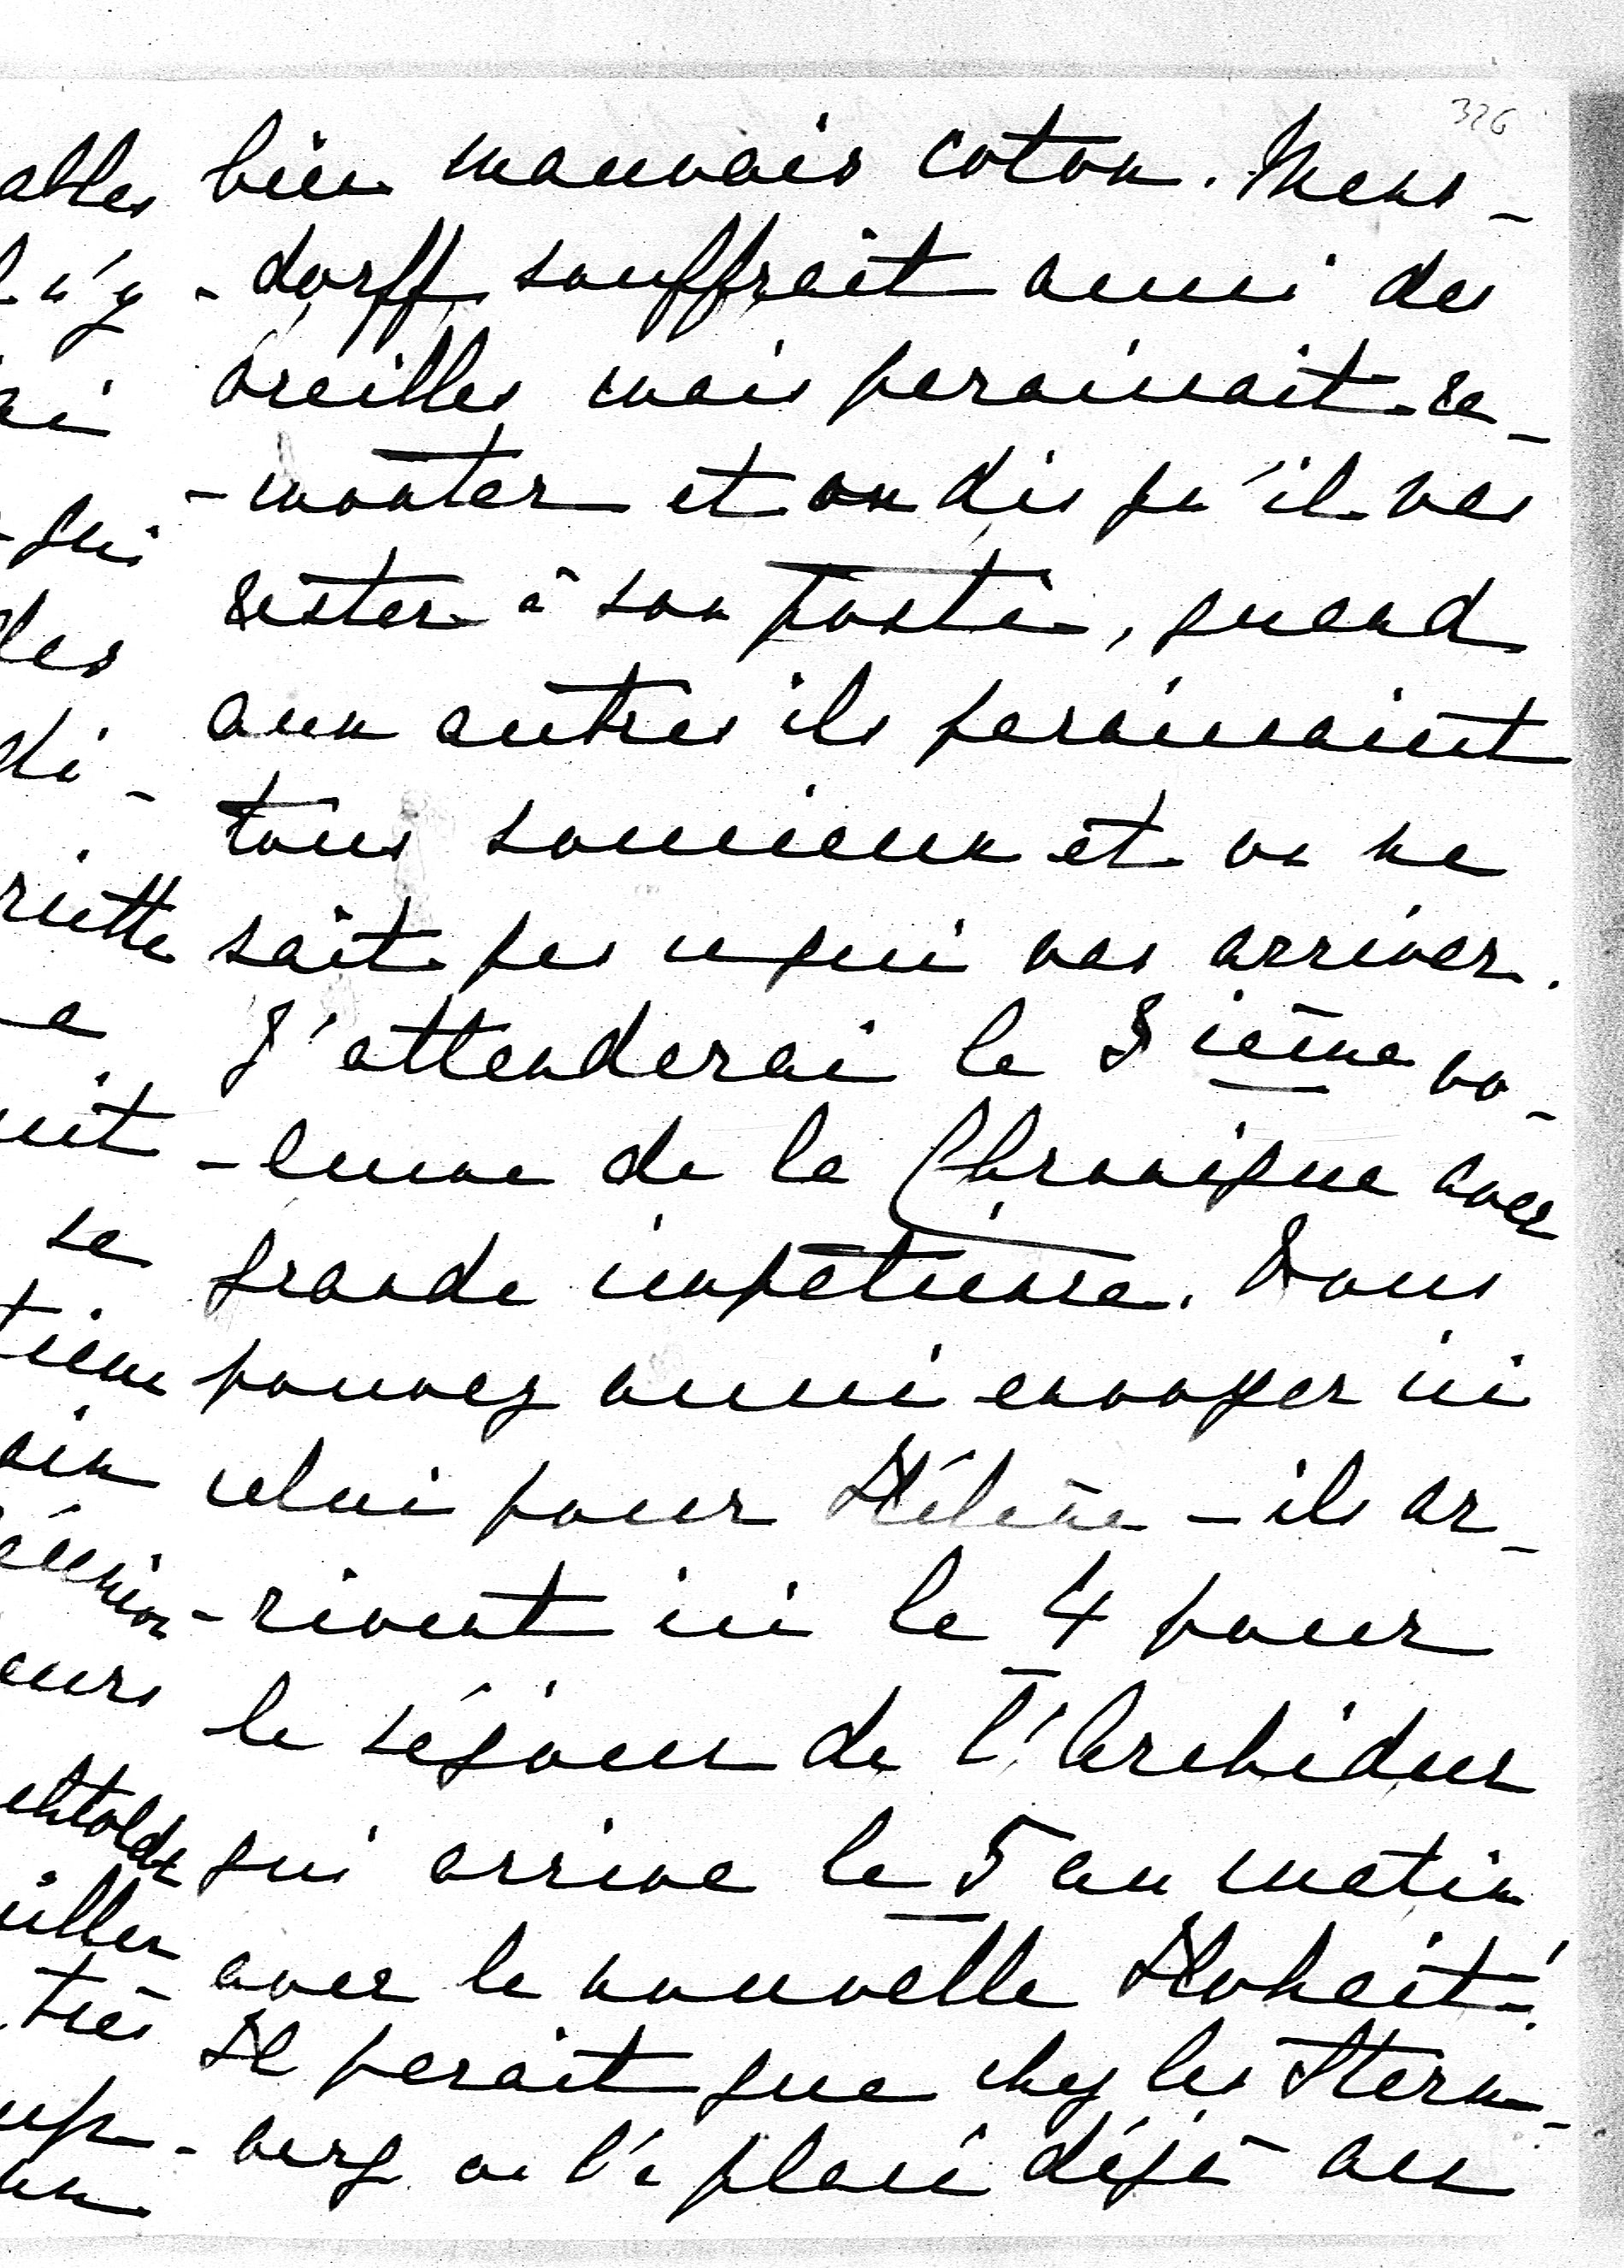 326
bien mauvais coton. Mens-
-dorff souffrait aussi des
oreilles mais paraissait re-
-monter et on dis qu'il vas
rester à son poste, quand
aux autres ils paraissaient
tous soucieux et on ne
sait pas ce qui vas arriver.
J'attenderai le 3ième vo-
-lume de la Chronique avec
grande impatience. Vous
pouvez aussi envoyer ici
celui pour Hélène - ils ar-
-rivent ici le 4 pour
le séjour de l'Archiduc
qui arrive le 5 au matin
avec la nouvelle Hoheit!
Il parait que chez les Stern-
-berg on l'a placé déjà au